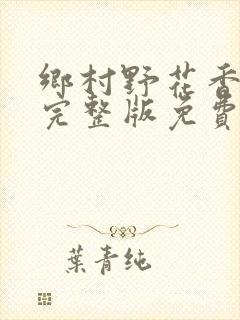 鄉村野花香
完整版免費
葉青純